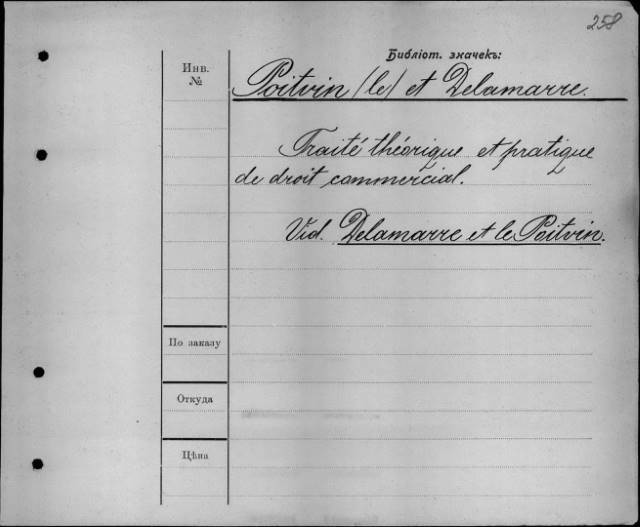 258
Библіот. значекъ:
Инв.
№
Poitvin (le) et Delamarre.
Traité théorique et pratique
de droit commercial.
Vid. Delamarre et le Poitvin.
По заказу
Откуда
Цѣна